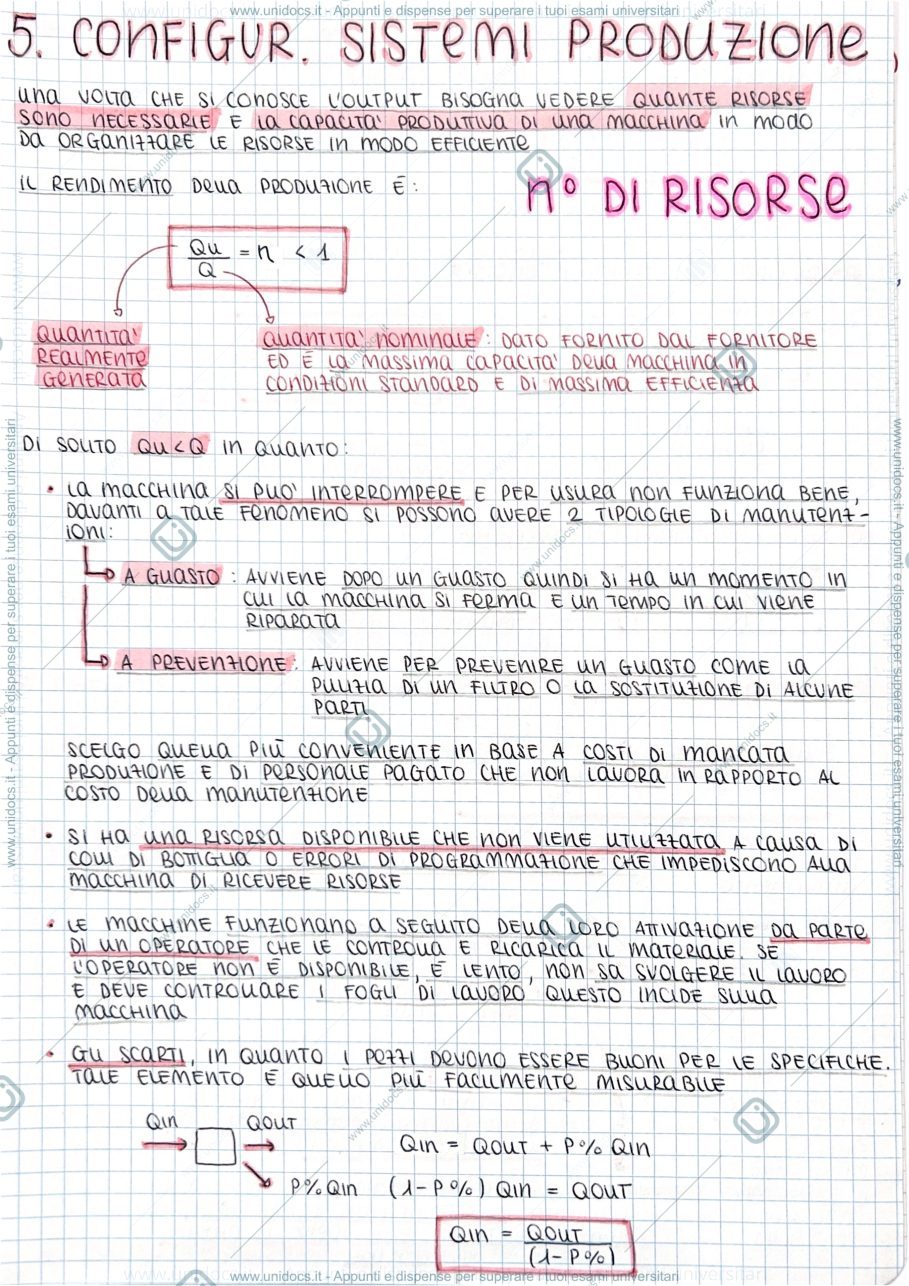 www.unidocs.it - Appunti e dispense per superare i tuoi esami universitari
5. CONFIGUR. SISTEMI PRODUZIONE
UNA VOLTA CHE SI CONOSCE L'OUTPUT BISOGNA VEDERE QUANTE RISORSE
SONO NECESSARIE E LA CAPACITA' PRODUTTIVA DI UNA MACCHINA IN MODO
DA ORGANIZZARE LE RISORSE IN MODO EFFICIENTE
IL RENDIMENTO DELLA PRODUZIONE È:
n° DI RISORSE
Qu/Q = η < 1
QUANTITA'
REALMENTE
GENERATA
QUANTITA' NOMINALE: DATO FORNITO DAL FORNITORE
ED È LA MASSIMA CAPACITA' DELLA MACCHINA IN
CONDIZIONI STANDARD E DI MASSIMA EFFICIENZA
DI SOLITO QU<Q IN QUANTO:
• LA MACCHINA SI PUO' INTERROMPERE E PER USURA NON FUNZIONA BENE,
DAVANTI A TALE FENOMENO SI POSSONO AVERE 2 TIPOLOGIE DI MANUTENZ-
IONI:
A GUASTO: AVVIENE DOPO UN GUASTO QUINDI SI HA UN MOMENTO IN
CUI LA MACCHINA SI FERMA E UN TEMPO IN CUI VIENE
RIPARATA
A PREVENZIONE: AVVIENE PER PREVENIRE UN GUASTO COME LA
PULIZIA DI UN FILTRO O LA SOSTITUZIONE DI ALCUNE
PARTI
SCELGO QUELLA PIÙ CONVENIENTE IN BASE A COSTI DI MANCATA
PRODUZIONE E DI PERSONALE PAGATO CHE NON LAVORA IN RAPPORTO AL
COSTO DELLA MANUTENZIONE
• SI HA UNA RISORSA DISPONIBILE CHE NON VIENE UTILIZZATA A CAUSA DI
COLLI DI BOTTIGLIA O ERRORI DI PROGRAMMAZIONE CHE IMPEDISCONO ALLA
MACCHINA DI RICEVERE RISORSE
• LE MACCHINE FUNZIONANO A SEGUITO DELLA LORO ATTIVAZIONE DA PARTE
DI UN OPERATORE CHE LE CONTROLLA E RICARICA IL MATERIALE. SE
L'OPERATORE NON È DISPONIBILE, È LENTO, NON SA SVOLGERE IL LAVORO
E DEVE CONTROLLARE I FOGLI DI LAVORO QUESTO INCIDE SULLA
MACCHINA
• GLI SCARTI, IN QUANTO I PEZZI DEVONO ESSERE BUONI PER LE SPECIFICHE.
TALE ELEMENTO È QUELLO PIÙ FACILMENTE MISURABILE
QIN QOUT
QIN = QOUT + P% QIN
P% QIN (1-P%) QIN = QOUT
QIN = QOUT/(1-P%)
www.unidocs.it - Appunti e dispense per superare i tuoi esami universitari
www.unidocs.it - Appunti e dispense per superare i tuoi esami universitari
www.unidocs.it - Appunti e dispense per superare i tuoi esami universitari